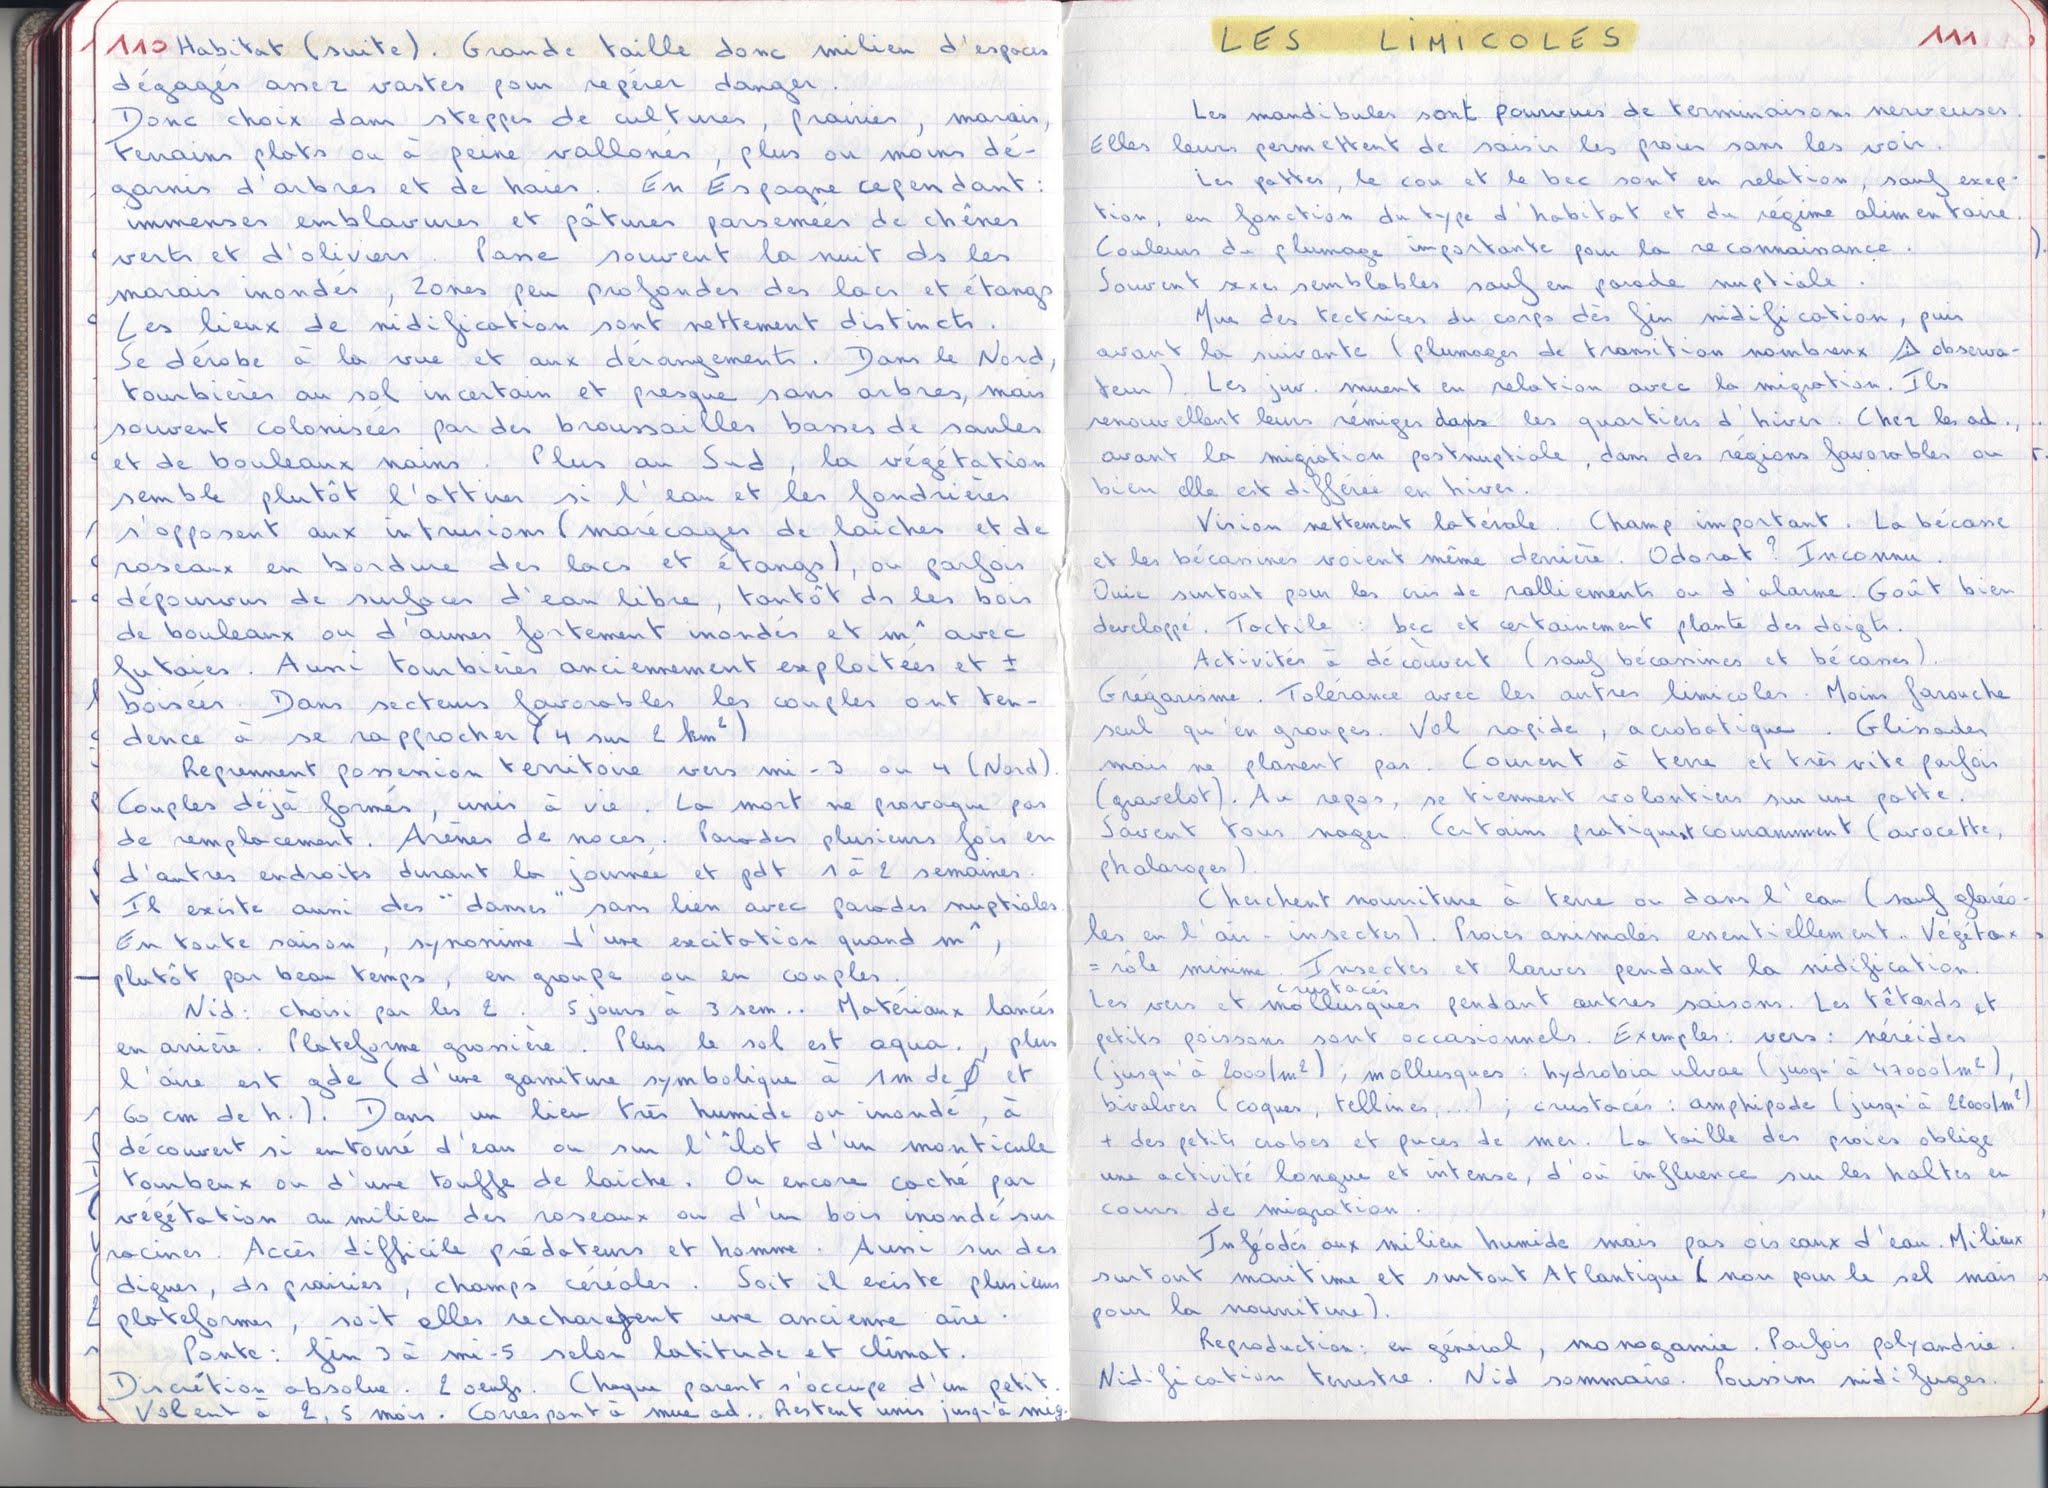 110 Habitat (suite). Grande taille donc milieu d'espaces
dégagés assez vastes pour repérer danger.
Donc choix dans steppes de cultures, prairies, marais,
Terrains plats ou à peine vallonés, plus ou moins dé-
garnis d'arbres et de haies. En Espagne cependant :
immenses emblavures et pâtures parsemées de chênes
verts et d'oliviers. Passe souvent la nuit ds les
marais inondés, zones peu profondes des lacs et étangs
Les lieux de nidification sont nettement distincts.
Se dérobe à la vue et aux dérangements. Dans le Nord,
tourbières au sol incertain et presque sans arbres, mais
souvent colonisées par des broussailles basses de saules
et de bouleaux nains. Plus au Sud, la végétation
semble plutôt l'attirer si l'eau et les fondrières
s'opposent aux intrusions (marécages de laiches et de
roseaux en bordure des lacs et étangs), ou parfois
dépourvus de surfaces d'eau libre, tantôt ds les bois
de bouleaux ou d'aunes fortement inondés et m^ avec
futaies. Aussi tourbières anciennement exploitées et ±
boisées. Dans secteurs favorables les couples ont ten-
dence à se rapprocher (4 sur 2 km²)
Reprennent possession territoire vers mi-3 ou 4 (Nord).
Couples déjà formés, unis à vie. La mort ne provoque pas
de remplacement. Arènes de noces. Parades plusieurs fois en
d'autres endroits durant la journée et pdt 1 à 2 semaines.
Il existe aussi des "danses" sans lien avec parades nuptiales.
En toute saison, synonime d'une excitation quand m^,
plutôt par beau temps, en groupe ou en couples.
Nid : choisi par les 2. 5 jours à 3 sem.. Matériaux lancés
en arrière. Plateforme grossière. Plus le sol est aqua., plus
l'aire est gde (d'une garniture symbolique à 1m de Ø et
60 cm de h.). Dans un lieu très humide ou inondé, à
découvert si entouré d'eau ou sur l'îlot d'un monticule
tourbeux ou d'une touffe de laiche. Ou encore caché par
végétation au milieu des roseaux ou d'un bois inondé sur
racines. Accès difficile prédateurs et homme. Aussi sur des
digues, ds prairies, champs céréales. Soit il existe plusieurs
plateformes, soit elles rechargent une ancienne aire.
Ponte : fin 3 à mi-5 selon latitude et climat.
Discrétion absolue. 2 oeufs. Chaque parent s'occupe d'un petit.
Volent à 2,5 mois. Correspont à mue ad.. Restent unis jusqu'à mig.
LES LIMICOLES 111
Les mandibules sont pourvues de terminaisons nerveuses.
Elles leurs permettent de saisir les proies sans les voir.
Les pattes, le cou et le bec sont en relation, sauf exep-
tion, en fonction du type d'habitat et du régime alimentaire.
Couleurs du plumage importante pour la reconnaissance.
Souvent sexes semblables sauf en parade nuptiale.
Mue des tectrices du corps dès fin nidification, puis
avant la suivante (plumages de transition nombreux ⚠ observa-
teur). Les juv. muent en relation avec la migration. Ils
renouvellent leurs rémiges dans les quartiers d'hiver. Chez les ad.,
avant la migration postnuptiale, dans des régions favorables ou
bien elle est différée en hiver.
Vision nettement latérale. Champ important. La bécasse
et les bécassines voient même derrière. Odorat ? Inconnu.
Ouïe surtout pour les cris de ralliements ou d'alarme. Goût bien
developpé. Tactile : bec et certainement plante des doigts.
Activités à découvert (sauf bécassines et bécasses).
Grégarisme. Tolérance avec les autres limicoles. Moins farouche
seul qu'en groupes. Vol rapide, acrobatique. Glissades
mais ne planent pas. Courent à terre et très vite parfois
(gravelot). Au repos, se tiennent volontiers sur une patte.
Savent tous nager. Certains pratiquent couramment (avocette,
phalaropes).
Cherchent nourriture à terre ou dans l'eau (sauf glaréo-
les en l'air - insectes). Proies animales essentiellement. Végétaux
= rôle minime. Insectes et larves pendant la nidification.
crustacés
Les vers et mollusques pendant autres saisons. Les têtards et
petits poissons sont occasionnels. Exemples : vers : néréides
(jusqu'à 2000/m²) ; mollusques : hydrobia ulvae (jusqu'à 47000/m²),
bivalves (coques, tellines,...) ; crustacés : amphipode (jusqu'à 22000/m²)
+ des petits crabes et puces de mer. La taille des proies oblige
une activité longue et intense, d'où influence sur les haltes en
cours de migration.
Inféodés aux milieu humide mais pas oiseaux d'eau. Milieux
surtout maritime et surtout Atlantique (non pour le sel mais
pour la nourriture).
Reproduction : en général, monogamie. Parfois polyandrie.
Nidification terrestre. Nid sommaire. Poussins nidifuges.